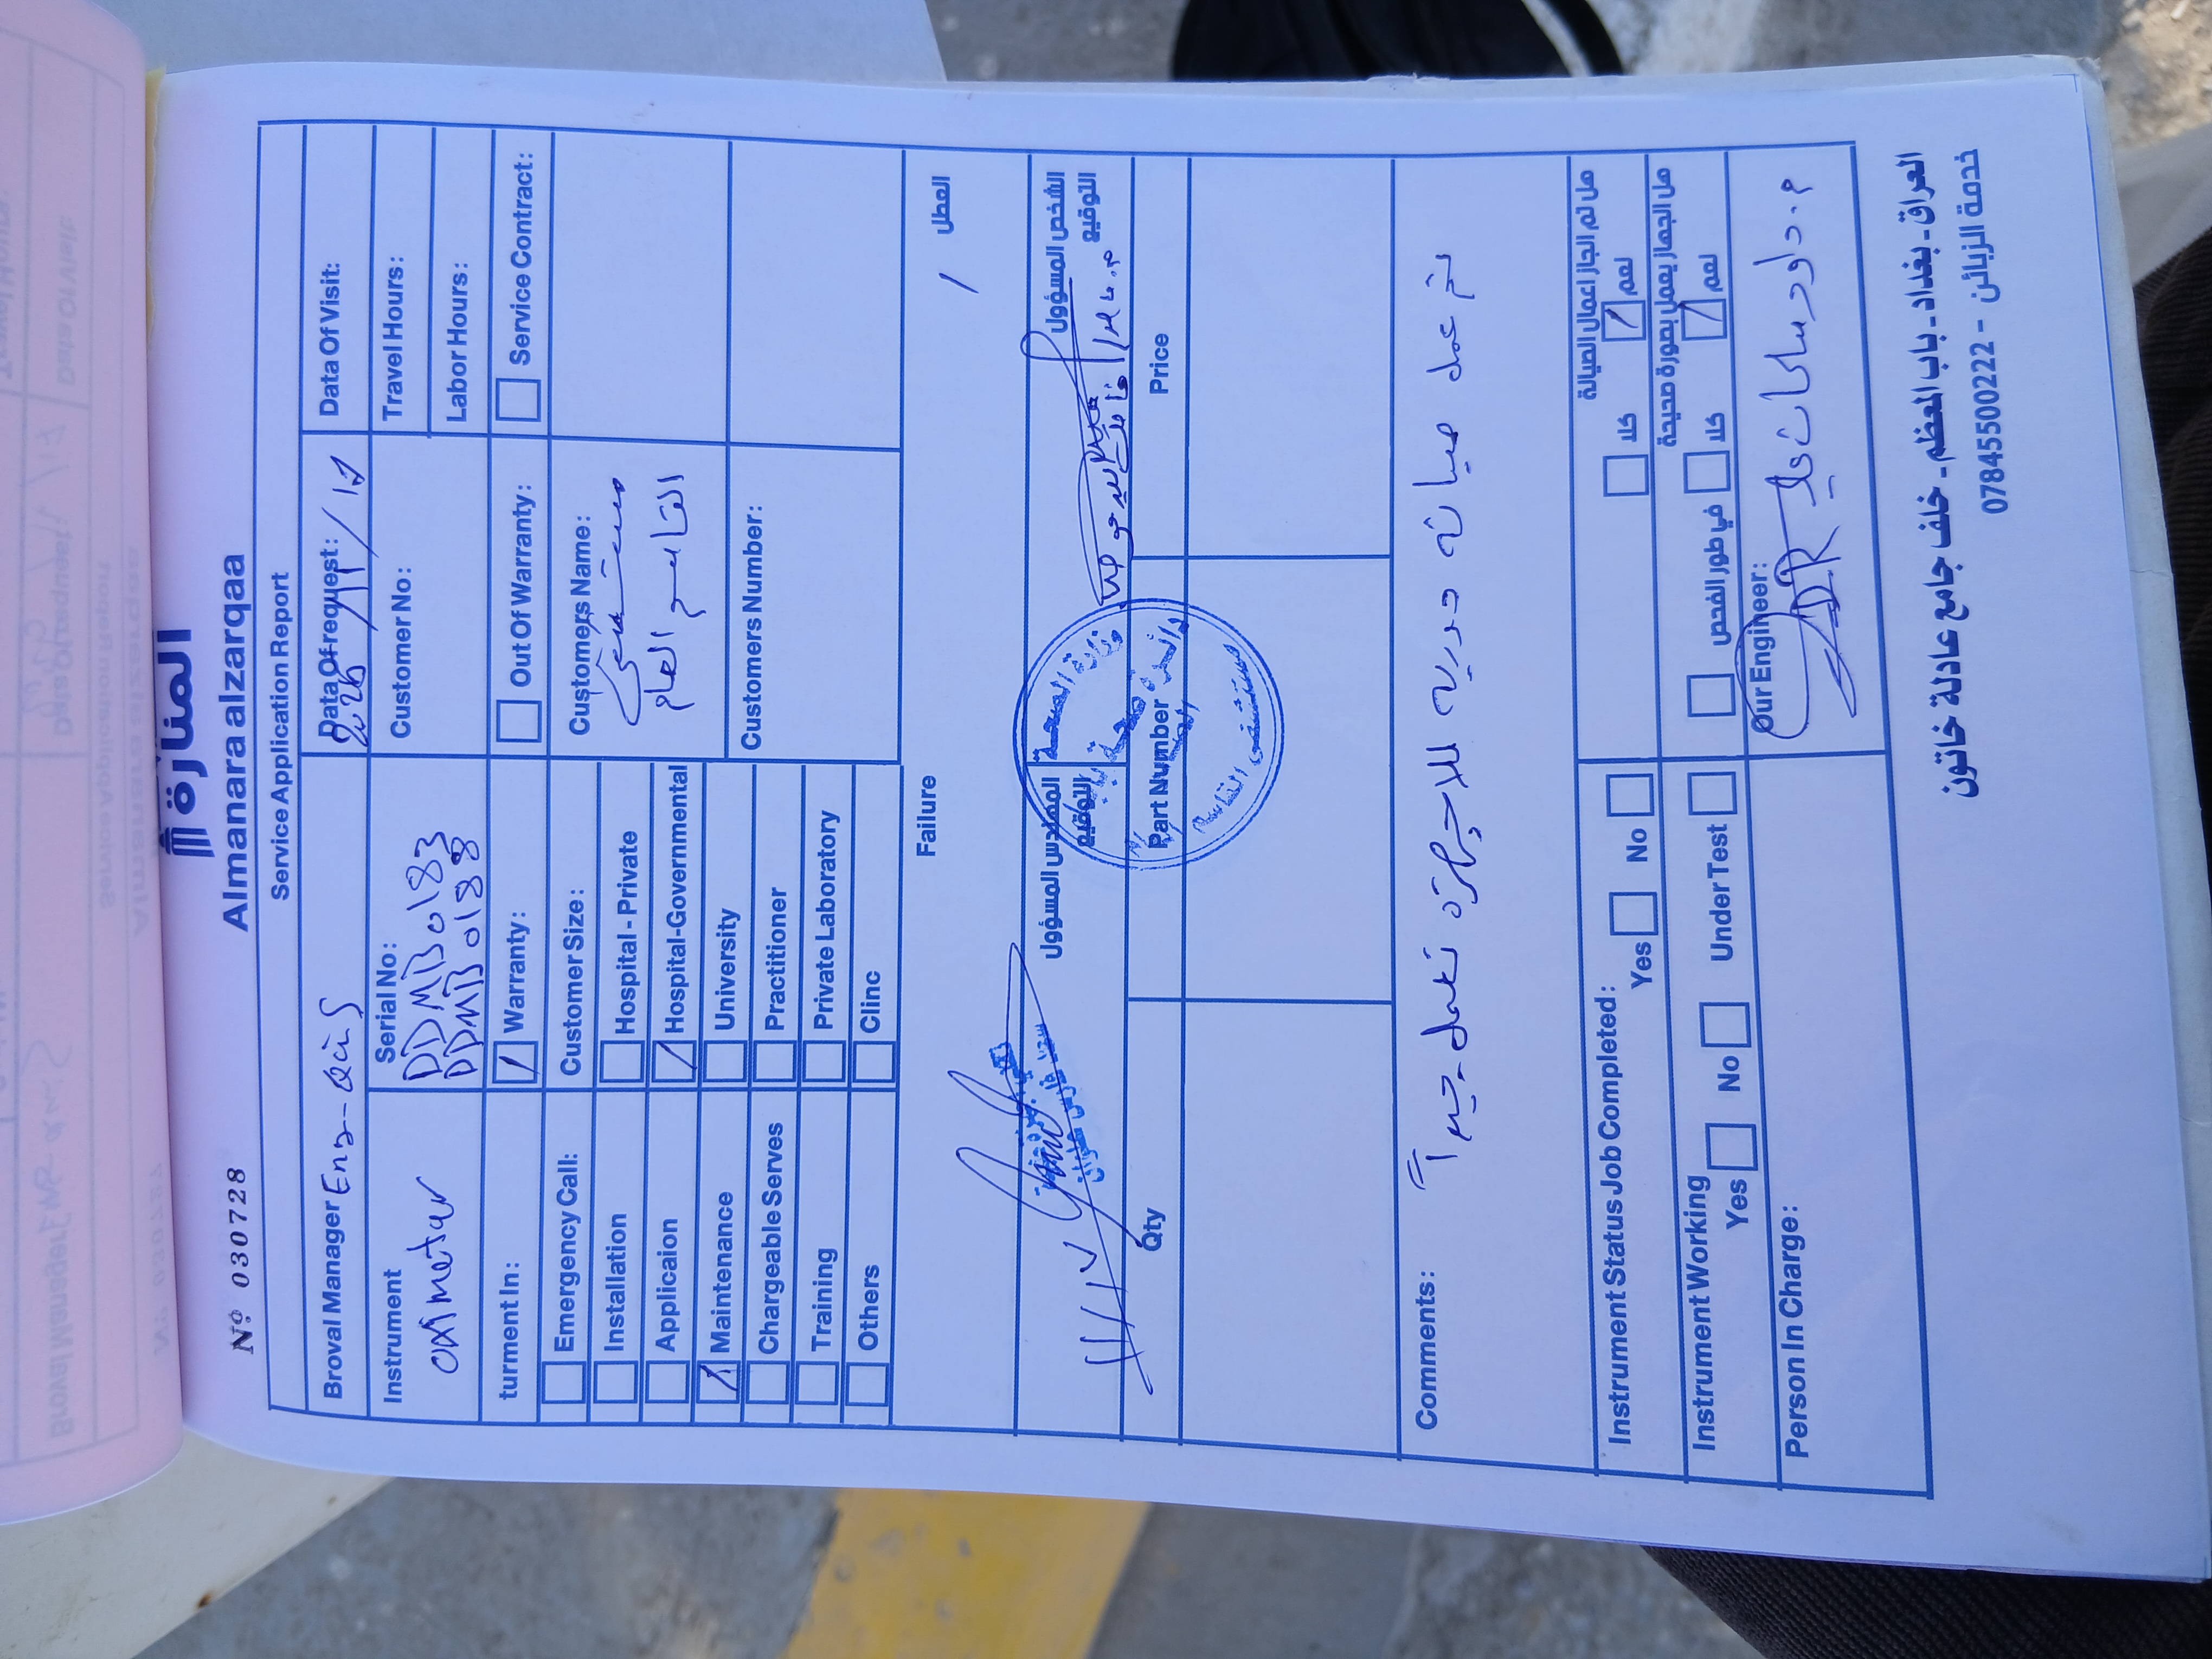 Nº 030728
المنارة
Almanara alzarqaa
Service Application Report
Broval Manager Eng-
Data Of request:
Data Of Visit:
Instrument
oximetar
Serial No:
DDMB0183
DDMB0188
Customer No:
Travel Hours:
Labor Hours:
turment In:
Warranty:
Out Of Warranty:
Service Contract:
Emergency Call:
Installation
Applicaion
Maintenance
Chargeable Serves
Training
Others
Customer Size:
Hospital - Private
Hospital-Governmental
University
Practitioner
Private Laboratory
Clinc
Customers Name:
مستشفى
القاسم العام
Customers Number:
Failure
العطل
/
المهندس المسؤول
التوقيع
الشخص المسؤول
التوقيع
وزارة الصحة
Qty
Part Number
Price
Comments:
تم عمل صيانة دورية للاجهزة تعمل جيداً
Instrument Status Job Completed:
Yes
No
هل تم انجاز اعمال الصيانة
كلا
نعم
Instrument Working
Yes
No
Under Test
هل الجهاز يعمل بصورة صحيحة
في طور الفحص
كلا
نعم
Person In Charge:
Our Engineer:
م. داود
العراق - بغداد - باب المعظم - خلف جامع عادلة خاتون
خدمة الزبائن - 07845500222